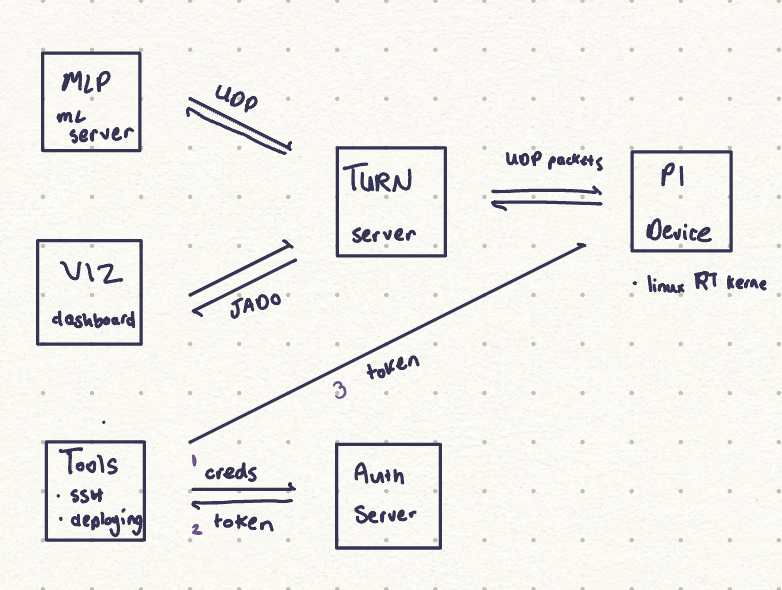 MLP
ml
server
UDP
TURN
server
UDP packets
PI
Device
• linux RT kerne
VIZ
dashboard
JADO
3 token
Tools
• SSH
• deploying
1
creds
2 token
Auth
Server